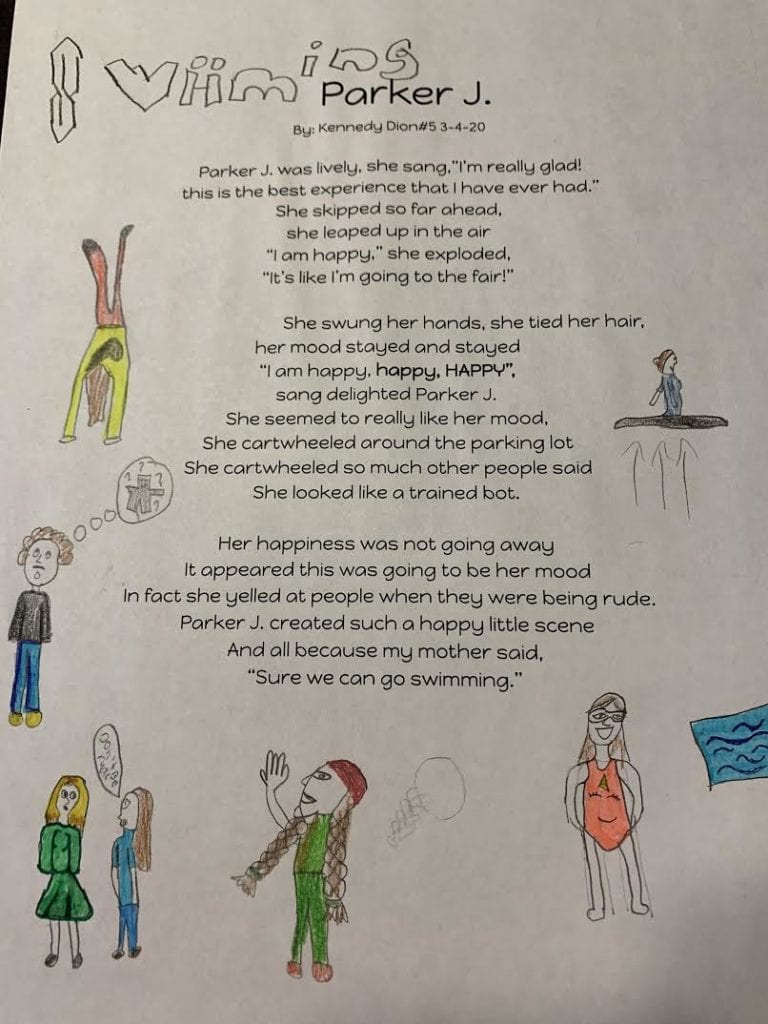 Swiiming
Parker J.
By: Kennedy Dion#5 3-4-20
Parker J. was lively, she sang,"I'm really glad!
this is the best experience that I have ever had."
She skipped so far ahead,
she leaped up in the air
"I am happy," she exploded,
"It's like I'm going to the fair!"
She swung her hands, she tied her hair,
her mood stayed and stayed
"I am happy, happy, HAPPY",
sang delighted Parker J.
She seemed to really like her mood,
She cartwheeled around the parking lot
She cartwheeled so much other people said
She looked like a trained bot.
? ? ? ?
Her happiness was not going away
It appeared this was going to be her mood
In fact she yelled at people when they were being rude.
Parker J. created such a happy little scene
And all because my mother said,
"Sure we can go swimming."
Don't Be